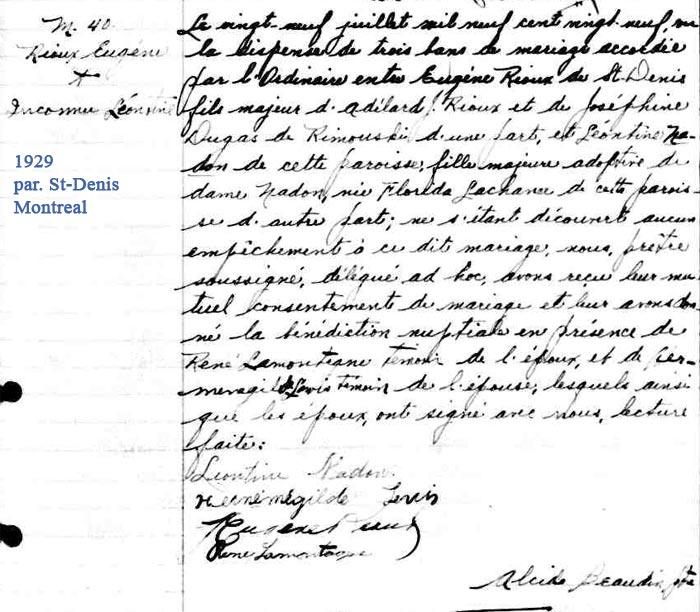 M. 40
Rioux Eugène
+
Inconnu Léontine
1929
par. St-Denis
Montreal
Le vingt-neuf juillet mil neuf cent vingt-neuf, vu
la dispense de trois bans de mariage accordée
par l'Ordinaire entre Eugène Rioux de St-Denis
fils majeur d'Adélard J. Rioux et de Joséphine
Dugas de Rimouski d'une part, et Léontine Na-
don de cette paroisse, fille majeure adoptive de
dame Nadon, née Florida Lachance de cette parois-
se d'autre part; ne s'étant découvert aucun
empêchement à ce dit mariage, nous, prêtre
soussigné, délégué ad hoc, avons reçu leur mu-
tuel consentement de mariage et leur avons don
né la bénédiction nuptiale en présence de
René Lamontagne témoin de l'époux, et de
Louis témoin de l'épouse, lesquels ainsi
que les époux, ont signé avec nous, lecture
faite:
Léontine Nadon
René Lamontagne
Alcide Beaudin ptre